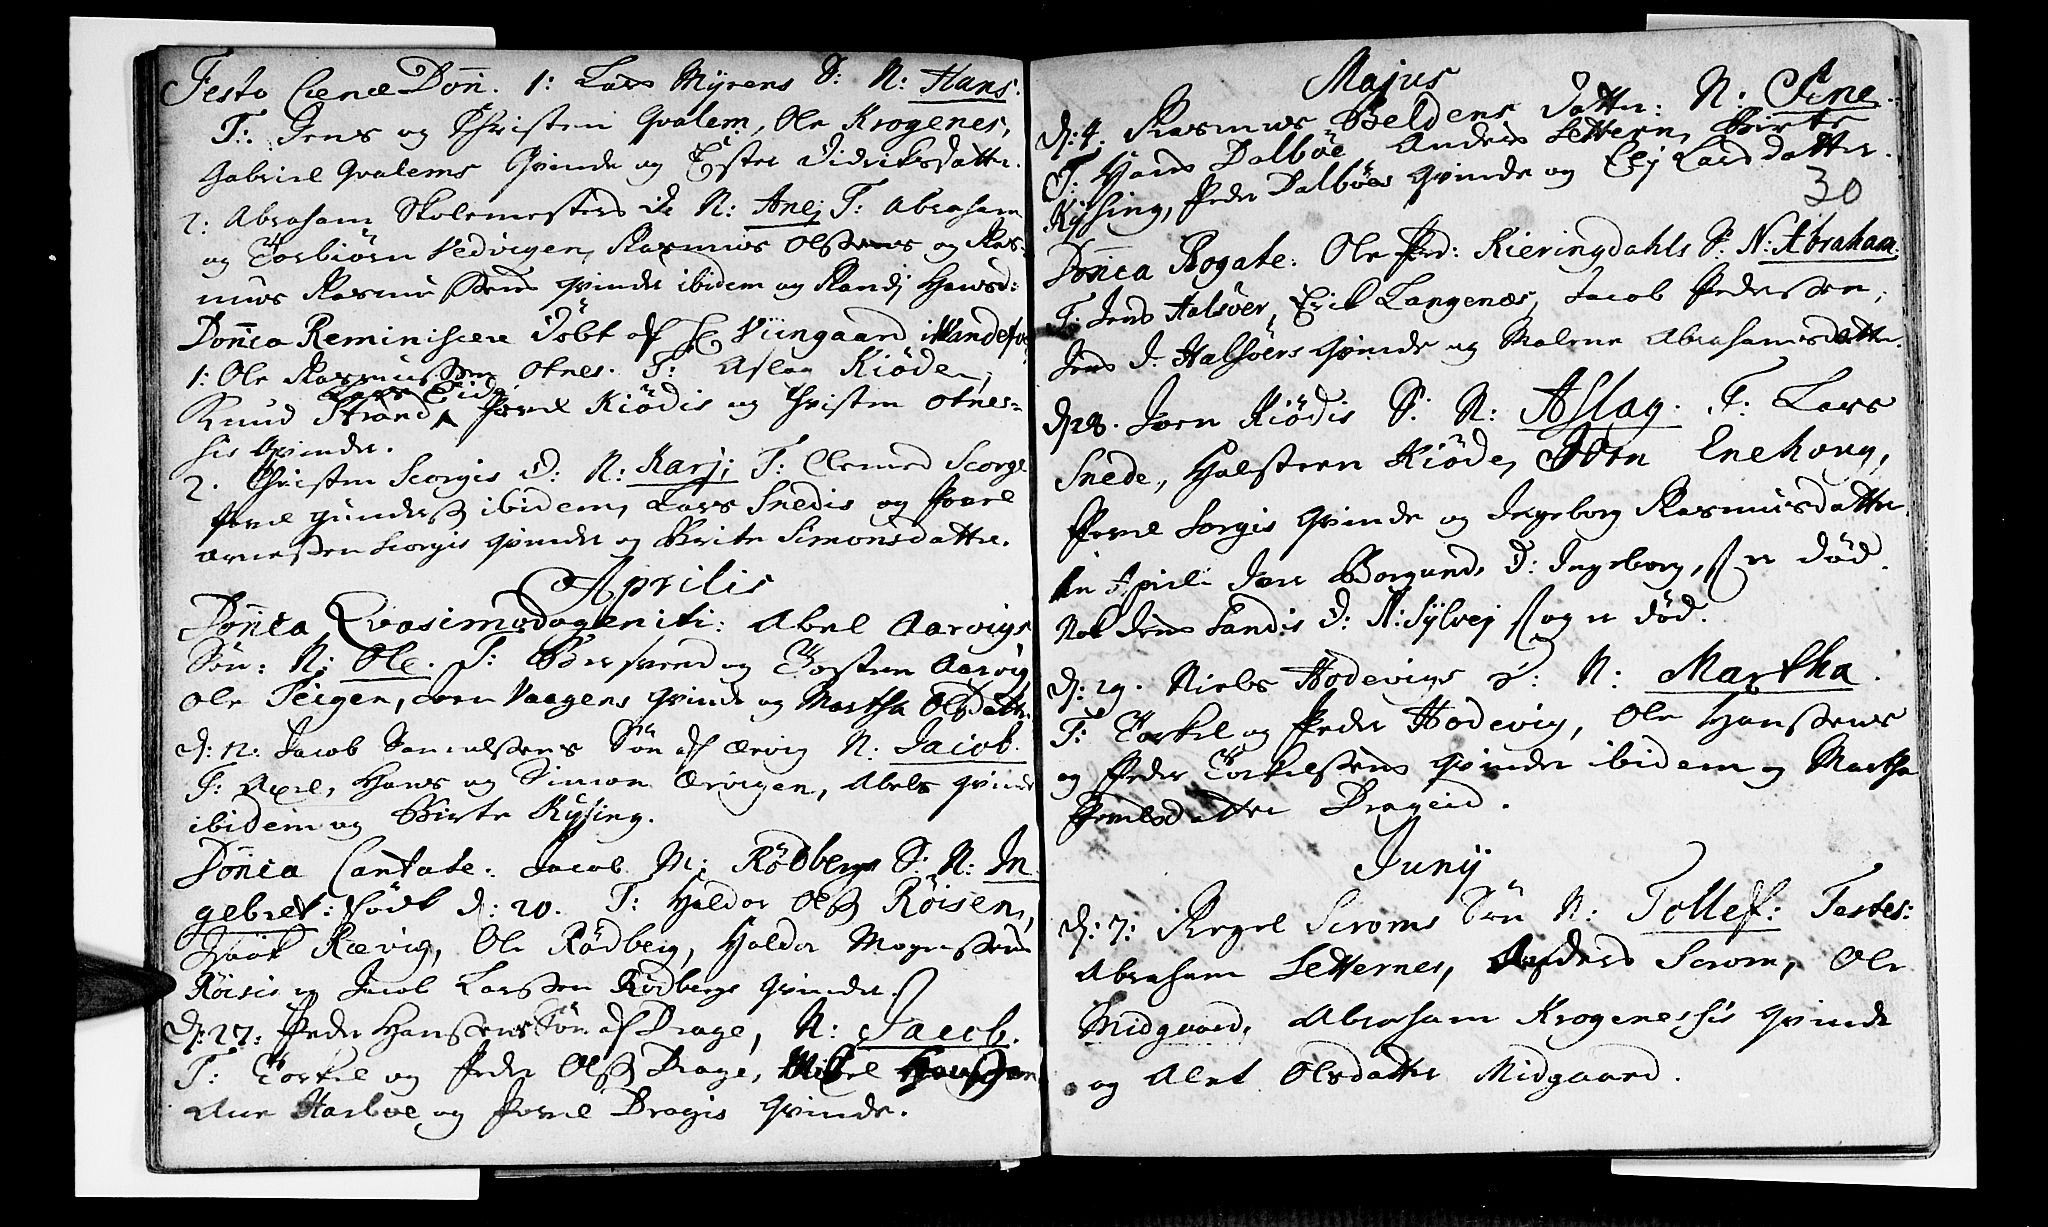 Festo Cænæ Dom̄. 1: Lars Myrens S: N: Hans:
T: Jens og Christen Qvalem, Ole Krogenes,
Gabriel Qvalems Qvinde og Ester Didriksdatter.
2: Abraham Skolemesters D: N: Anej T: Abraham
og Torbiörn Vedvigen, Rasmus Olssens og Ras-
mus Rasmussens qvinder ibidem og Randj Hansd:
Dom̄ca Reminiscere döbt af H. Viingaard i
1: Ole Rasmussen Otnes. T: Aslag Kiöde,
Lars Eide
Knud Strand, Povel Kiödis og Christen Otnes-
sis Qvinder.
2. Christen Scorgis D: N: Karj; T: Clemed Scorge
Povel Gunderss ibidem, Lars Snedis og Povel
Arnessen Scorgis qvinder og Birte Simonsdatter.
Aprilis
Dom̄ca Qvasimodogeniti: Abel Aarvigs
Sön: N: Ole. T: og Tosten Aarvig
Ole Teigen, Joen Vaagens Qvinde og Martha Olsdatter
d: 11: Jacob Samuelssens Sön af Ærvig N: Jacob.
T: Axel, Hans og Simon Ærvigen, Abels qvinde
ibidem og Birte Rysing.
Dom̄ca Cantate. Jacob M: Rödbergs S: N: In
gebret: födt d: 20. T: Haldor Olss Röisen,
Isaak Rævig, Ole Rödberg, Haldor Mogenssens
Röisis og Jacob Larssen Rödbergs Qvinder.
d: 27: Peder Hanssens Sön af Drage, N: Jacob.
T: Torkel og Peder Olss Drage, Mikel Hanssen
Ane Harboe og Povel Dragis Qvinde.
Majus
d: 4. Rasmus Beldens Datter: N: Ane.
T: Hans Dalböe Anders Settern, Birte
Rysing, Peder Dalböes Qvinde og Elj Larsdatter.
30
Dom̄ca Rogate: Ole Ped: Kieringdahls S: N: Abraham:
T: Jens Halsöer, Erik Langenæs, Jacob Pederssen,
Jens J. Halsöers Qvinde og Malene Abrahamsdatter.
d 28. Joen Kiödis S: N: Aslag. T: Lars
Snede, Halsteen Kiöde, Joen Enehoug,
Povel Sorgis Qvinde og Ingeborg Rasmusdatter.
in Aprili Joer Borgunds D: Ingeborg, er död.
Nok Jens Sandis D: N: Sylvej og er död.
d: 29. Niels Hodevigs D: N: Martha.
T: Torkel og Peder Hodevig, Ole Hanssens
og Peder Torkelssens Qvinder ibidem og Martha
Povelsdatter Drageid.
Junij
d: 7: Regel Scroms Sön N: Tollef: Testes:
Abraham Setternes, Anders Scrom, Ole
Midgaard, Abraham Krogenessis Qvinde
og Alet Olsdatter Midgaard.